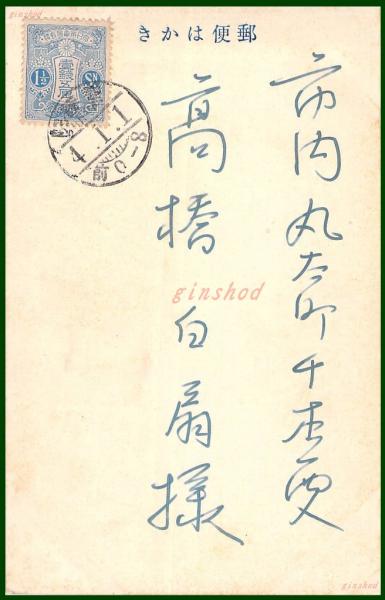 ginshod
きかは便郵
1½ SN
壹錢五厘
4.1.1
前0-8
市内丸太町千本西
高橋白扇様
ginshod
ginshod